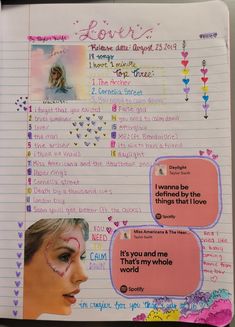 Lover
By Taylor Swift
Release date: August 23 2019
18 songs
1 hour 1 minute
Top three:
1. The Archer
2. Cornelia Street
I forgot that you existed
lover
the man
the archer
I think he knows
Miss Americana and the Heartbreak prince
Paper rings
Cornelia street
Death by a thousand cuts
london boy
Soon you'll get better (ft. the chicks)
False god
You need to calm down
Afterglow
ME!
It's nice to have a friend
daylight
Daylight
Taylor Swift
I wanna be
defined by the
things that I love
Spotify
YOU
NEED
CALM
DOWN
Miss Americana & The Hear...
Taylor Swift
It's you and me
That's my whole
world
Spotify